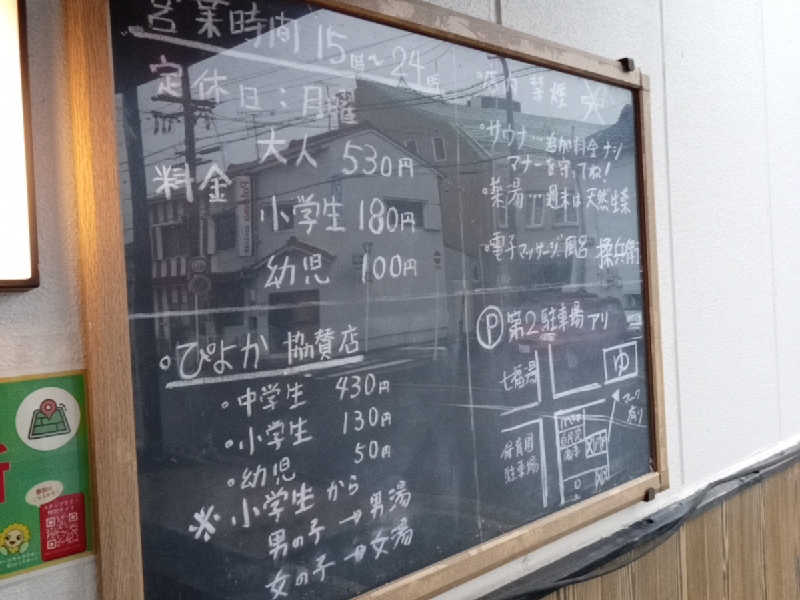 営業時間 15時〜24時
定休日：月曜
料金 大人 530円
小学生 180円
幼児 100円
・ぴよか 協賛店
・中学生 430円
・小学生 130円
・幼児 50円
※小学生から
男の子→男湯
女の子→女湯
禁煙
・サウナ…追加料金ナシ
マナーを守ってね!
・薬湯…週末は天然生薬
・電子マッサージ風呂 揉兵衛
Ⓟ 第2駐車場アリ
七福湯
ゆ
マーク有り
保育園
駐車場